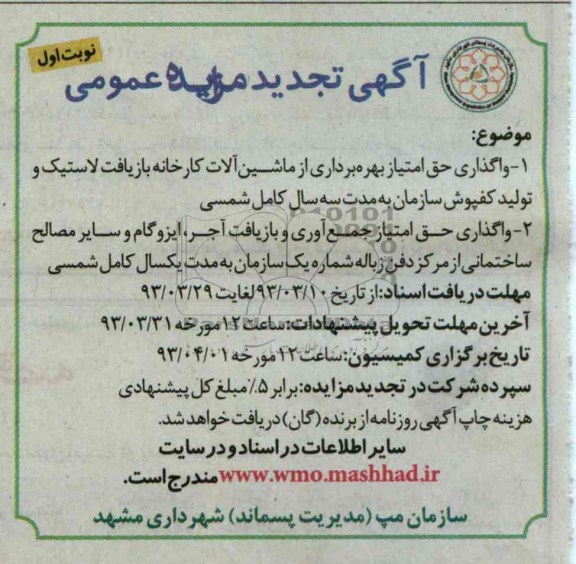 نوبت اول
آگهی تجدید مزایده عمومی
موضوع:
۱-واگذاری حق امتیاز بهره‌برداری از ماشین‌آلات کارخانه بازیافت لاستیک و
تولید کفپوش سازمان به مدت سه سال کامل شمسی
۲-واگذاری حق امتیاز جمع‌آوری و بازیافت آجر، ایزوگام و سایر مصالح
ساختمانی از مرکز دفن زباله شماره یک سازمان به مدت یکسال کامل شمسی
مهلت دریافت اسناد: از تاریخ ۹۳/۰۳/۱۰ لغایت ۹۳/۰۳/۲۹
آخرین مهلت تحویل پیشنهادات: ساعت ۱۲ مورخه ۹۳/۰۳/۳۱
تاریخ برگزاری کمیسیون: ساعت ۱۲ مورخه ۹۳/۰۴/۰۱
سپرده شرکت در تجدید مزایده: برابر ۵٪ مبلغ کل پیشنهادی
هزینه چاپ آگهی روزنامه از برنده (گان) دریافت خواهد شد.
سایر اطلاعات در اسناد و در سایت
www.wmo.mashhad.ir مندرج است.
سازمان مپ (مدیریت پسماند) شهرداری مشهد